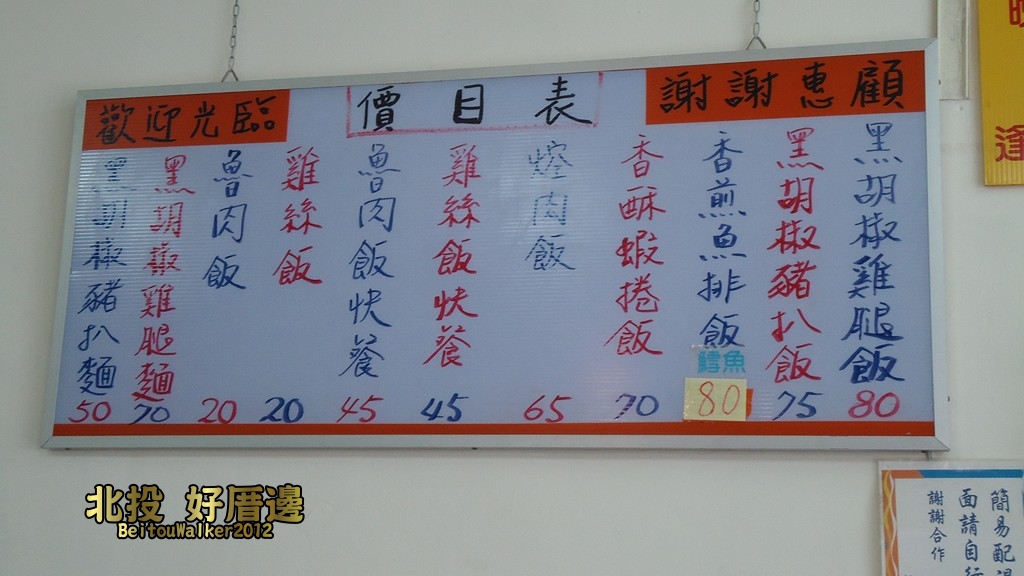 歡迎光臨
價目表
謝謝惠顧
黑胡椒雞腿飯
80
黑胡椒豬扒飯
75
香煎魚排飯
鱈魚
80
香酥蝦捲飯
70
焢肉飯
65
雞絲飯快餐
45
魯肉飯快餐
45
雞絲飯
20
魯肉飯
20
黑胡椒雞腿麵
70
黑胡椒豬扒麵
50
逢
簡易配
面請自行
謝謝合作
北投 好厝邊
BeitouWalker2012